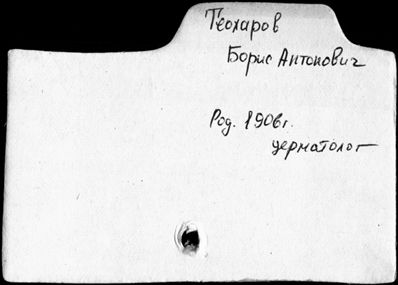 Теохаров
Борис Антонович
Род. 1906г.
дерматолог